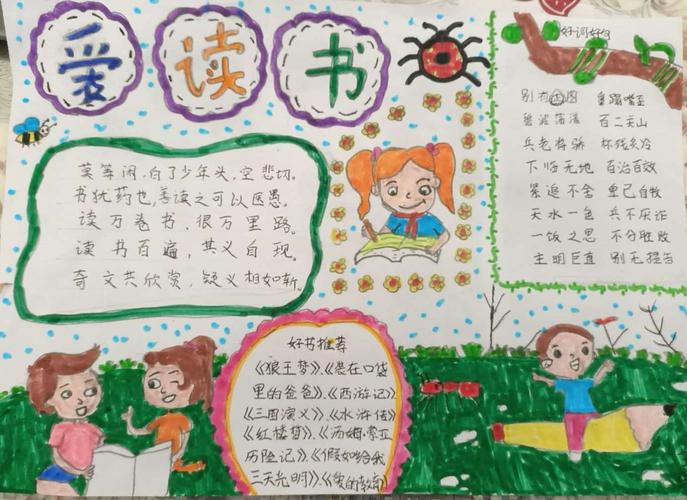 爱读书
莫等闲,白了少年头,空悲切。
书犹药也,善读之可以医愚。
读万卷书,很万里路。
读书百遍,其义自现。
奇文共欣赏,疑义相如析。
好词好句
别有
百二关山
兵老将骄 杯残炙冷
下临无地 百治百效
紧追不舍 卑己自牧
天水一色 兵不厌诈
一饭之恩 不分胜败
主明臣直 别无
好书推荐
《狼王梦》、《装在口袋
里的爸爸》、《西游记》
《三国演义》、《水浒传》
《红楼梦》、《汤姆·索亚
历险记》、《假如给我
三天光明》、《爱的教育》